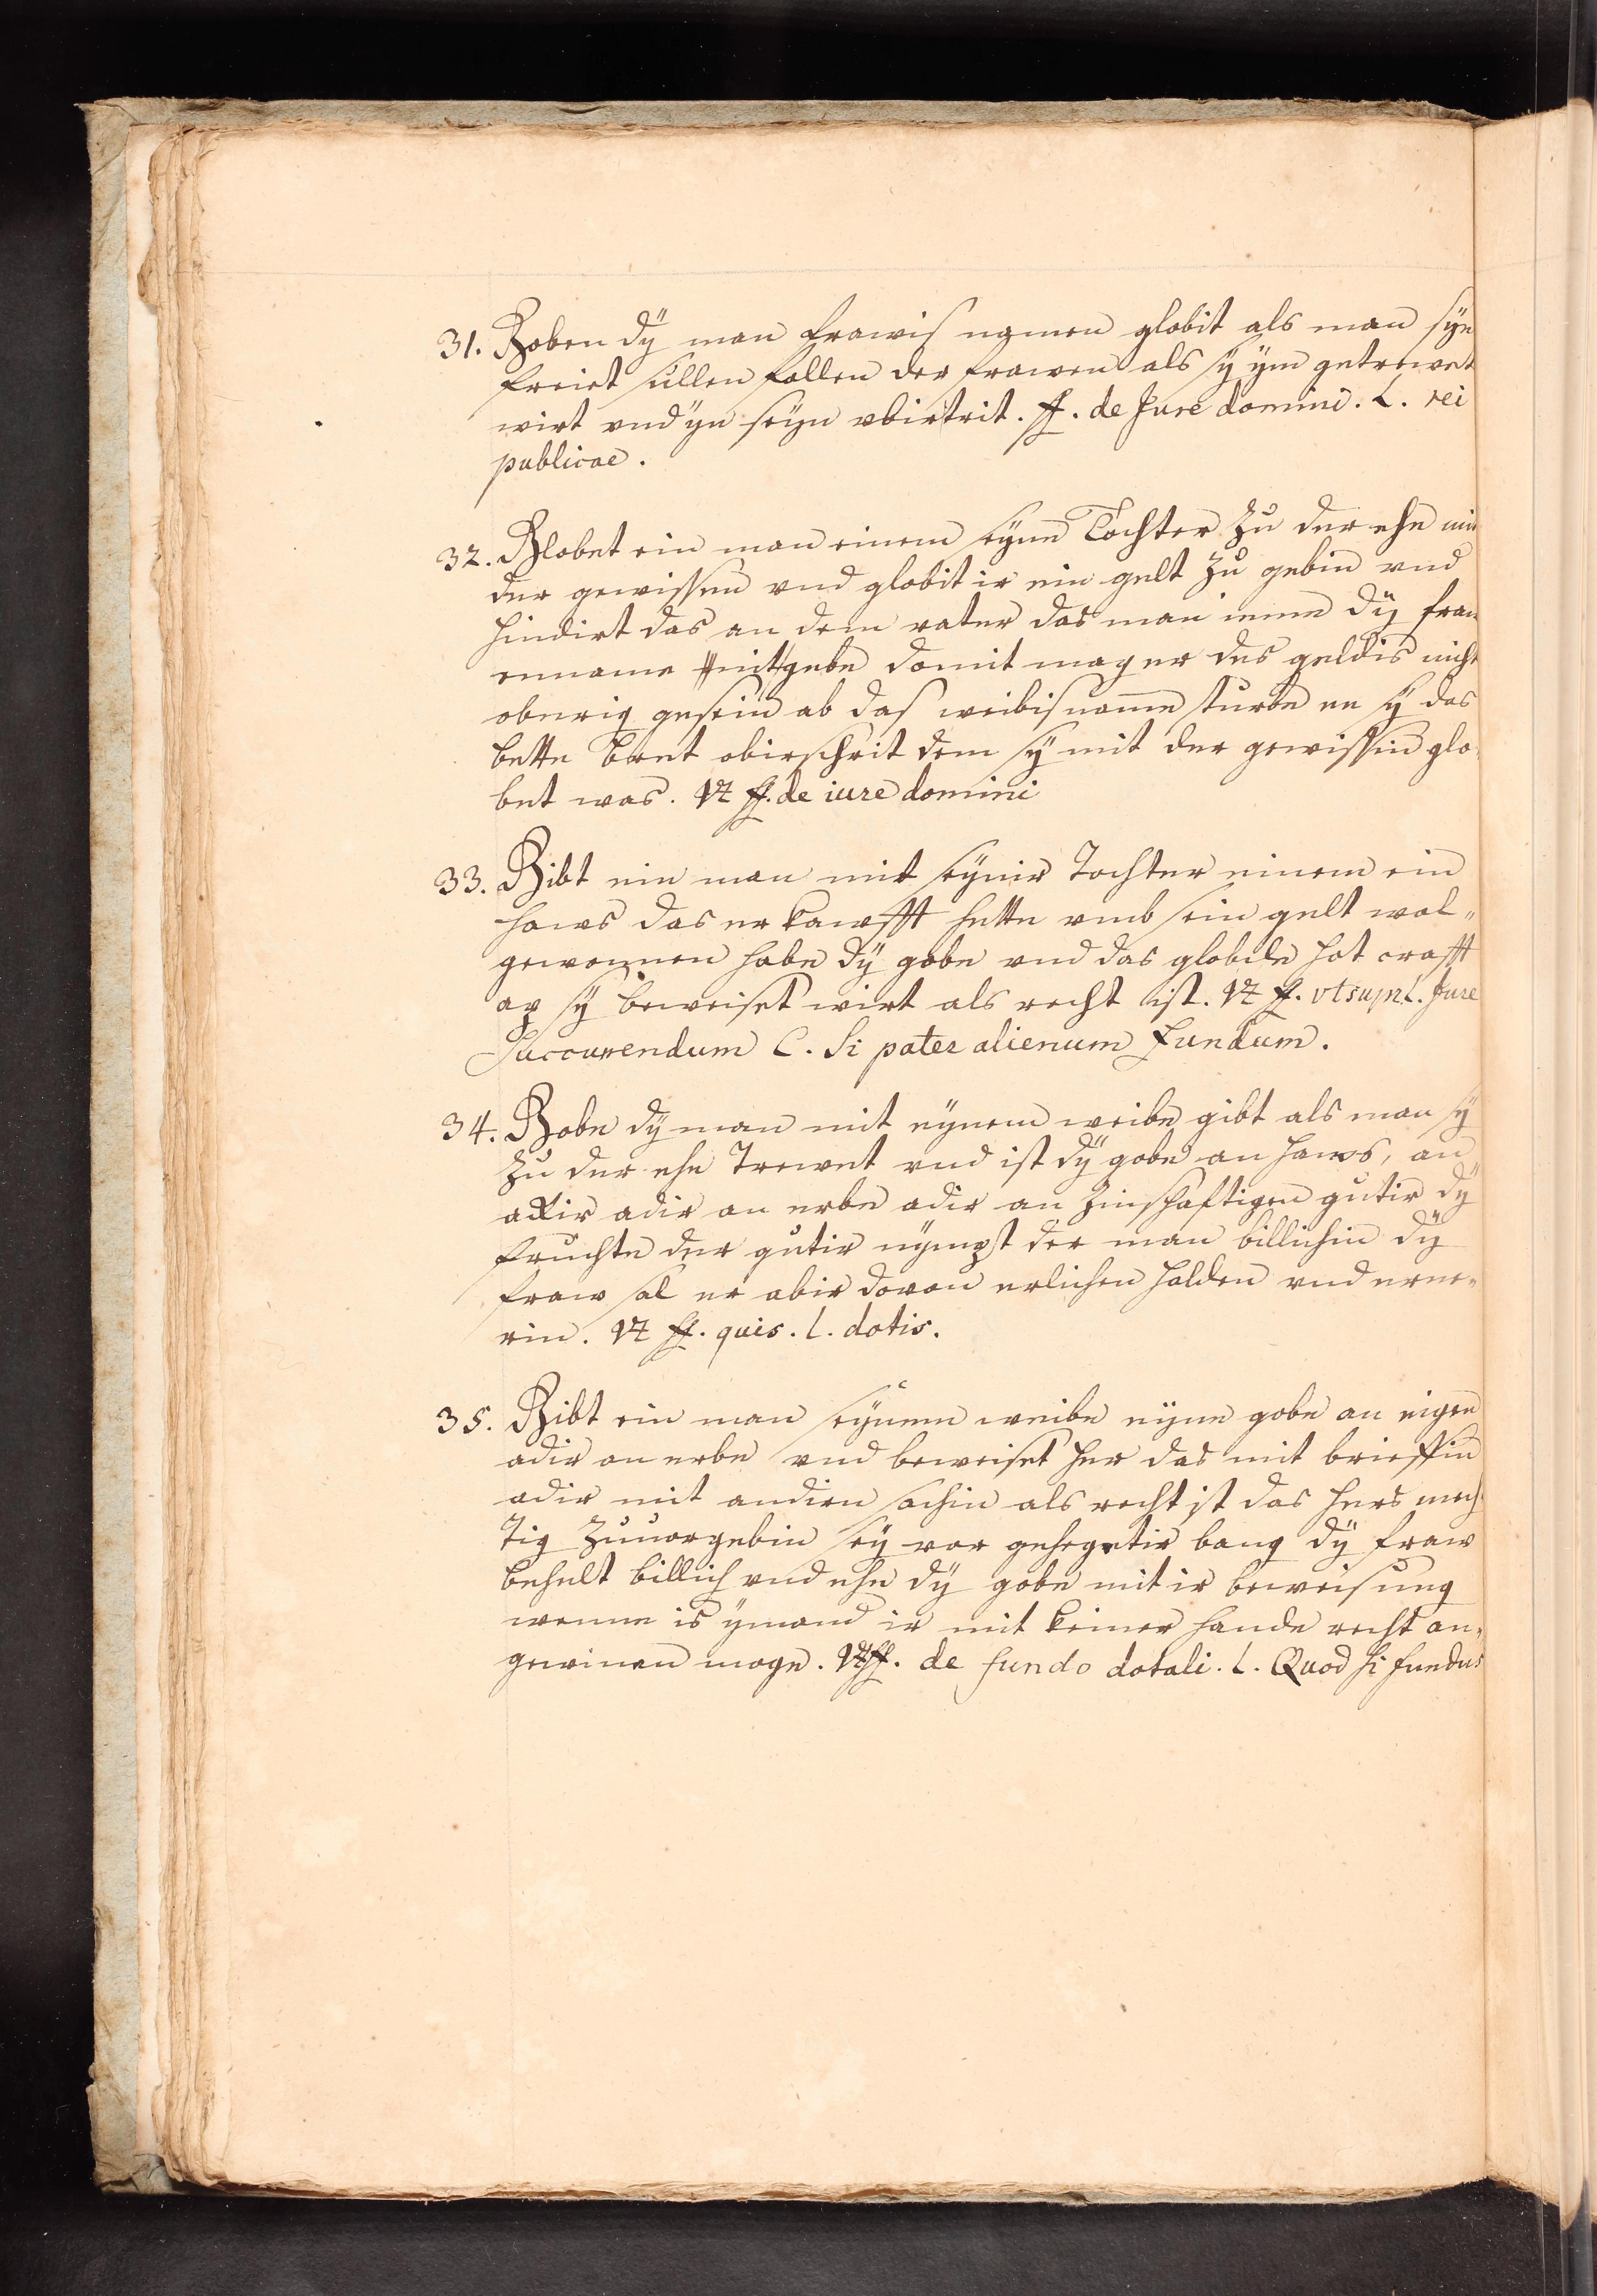 31. Goben dÿ man frawis namen globit als man sÿn
freiet süllen follen der frawen als sÿ ÿm getrewet
wirt vnd ÿn seÿn vbirtrit. ff. de Jure domini. L. rei
publicae.
32. Globet ein man einem seÿne Tochter zu der ehe mit
der gewissen vnd globit ir ein gelt zu gebin vnd
hindirt das an dem vater das man ieme dÿ fraw
enname nit gebe domit mag er des geldis nicht
oberig gesein ab das weibisname sturbe ee sÿ das
bette bret obirschrit dem sÿ mit der gewissin glo-
bet was. Vt ff. de iure domini
33. Gibt ein man mit seÿnir Tochter einem ein
haws das er kawfft hette vmb sein gelt wol-
gewonnen habe dÿ gobe vnd das globde hot crafft
ap sÿ beweiset wirt als recht ist. Vt ff. vt supr. l. Jure
Succurrendum C. Si pater alienum fundum.
34. Gobe dÿ man mit eÿnem weibe gibt als man sÿ
zu der ehe Trewet vnd ist dÿ gobe an haws, an
akir adir an erbe adir an zinshaftigen gutir dÿ
fruchte der gutir nÿmpst der man billichin dÿ
fraw sal er abir dovon erlichen halden vnd erne-
rin. Vt ff. quis. l. dotis.
35. Gibt ein man seÿnem weibe eÿne gobe an eigen
adir an erbe vnd beweiset her das mit brieffin
adir mit andirn sachin als recht ist das hers mech
tig zuuorgebin seÿ vor gehegetir bang dÿ fraw
behelt billich vnd ehe dÿ gobe mit ir beweisung
wenne is ÿmand ir mit keiner hande recht an-
gewinen moge. Vt ff. de fundo dotali. l. Quod si fundus